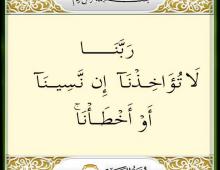 رَبَّنَــا
لَا تُؤَاخِذْنَآ إِن نَّسِينَآ
أَوْ أَخْطَـأْنَاۚ